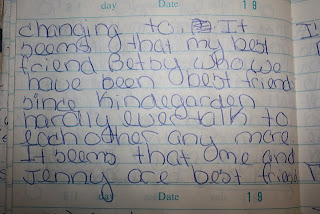 day Date 19
changing to. It
seems that my best
friend Betsy who we
have been best friend
since Kindegarden
hardly ever talk to
each other any more
It seems that Ome and
Jenny are best friend
day Date 19